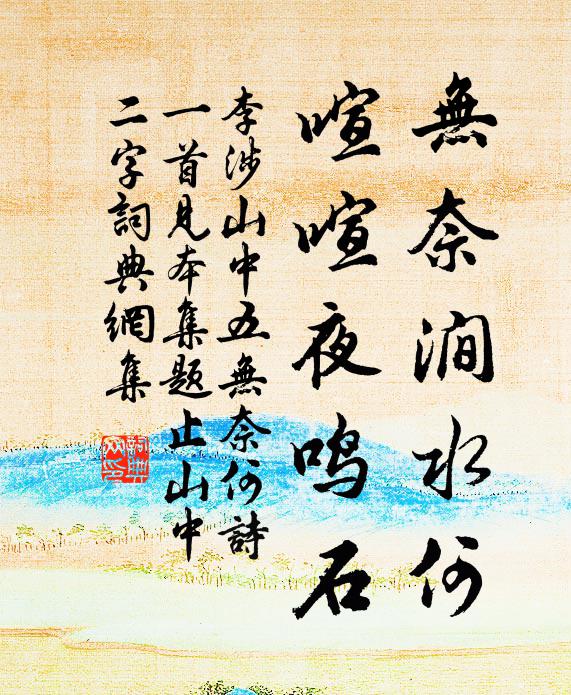 無奈澗水何
喧喧夜鸣石
李涉山中五無奈何詩
一首見本集題止山中
二字詞典網集